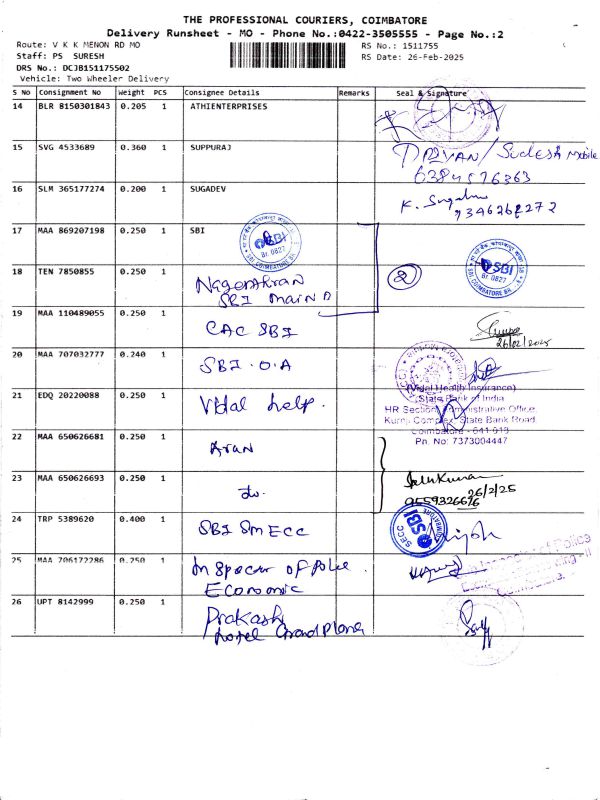 THE PROFESSIONAL COURIERS, COIMBATORE
Delivery Runsheet - MO - Phone No.:0422-3505555 - Page No.:2
Route: V K K MENON RD MO
RS No.: 1511755
Staff: PS SURESH
RS Date: 26-Feb-2025
DRS No.: DCJB151175502
Vehicle: Two Wheeler Delivery
S No Consignment No Weight PCS Consignee Details Remarks Seal & Signature
14 BLR 8150301843 0.205 1 ATHIENTERPRISES
15 SVG 4533689 0.360 1 SUPPURAJ
Mobile
6384576363
16 SLM 365177274 0.200 1 SUGADEV
K.
9346262272
17 MAA 869207198 0.250 1 SBI
SBI
Br. 0827
SBI, COIMBATORE BR.
SBI
Br. 0827
SBI, COIMBATORE BR.
18 TEN 7850855 0.250 1
SBI main B
2
19 MAA 110489055 0.250 1 CAC SBI
26/02/2025
20 MAA 707032777 0.240 1 SBI. O.A
(Vidal Health Insurance)
State Bank of India
HR Section, Administrative Office,
State Bank Road
Coimbatore - 641 018
Pn. No: 7373004447
21 EDQ 20220088 0.250 1 Vidal help.
22 MAA 650626681 0.250 1
23 MAA 650626693 0.250 1 do.
26/2/25
24 TRP 5389620 0.400 1 SBI SMECC
SECC
SBI
COIMBATORE
25 MAA 706172286 0.250 1 Inspector of Police.
Economic
26 UPT 8142999 0.250 1 Prakash
hotel Grand Plaza